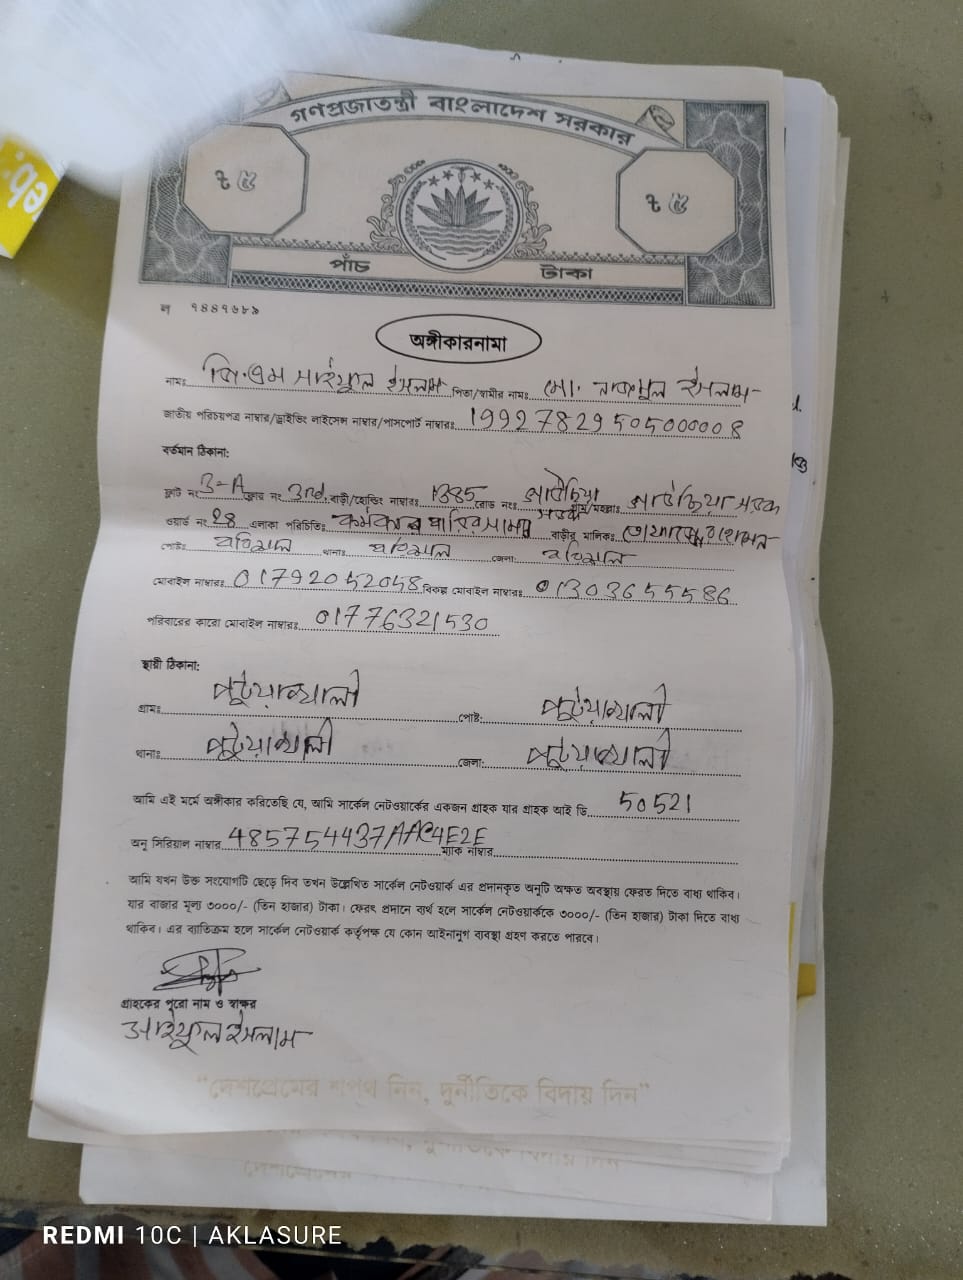 গণপ্রজাতন্ত্রী বাংলাদেশ সরকার
৳ ৫ ৳ ৫
পাঁচ টাকা
ল ৭৪৪৭৬৮৯
অঙ্গীকারনামা
নামঃ জি.এম সাইফুল ইসলাম পিতা/স্বামীর নামঃ মো. নাজমুল ইসলাম
জাতীয় পরিচয়পত্র নাম্বার/ড্রাইভিং লাইসেন্স নাম্বার/পাসপোর্ট নাম্বারঃ 19927829505000008
বর্তমান ঠিকানা:
ফ্লাট নং 3-A ফ্লোর নং 3rd বাড়ী/হোল্ডিং নাম্বারঃ 1385 রোড নংঃ গ্রাম/মহল্লাঃ সড়ক
ওয়ার্ড নং 28 এলাকা পরিচিতিঃ কর্মকার সড়ক বাড়ীর মালিকঃ
পোষ্টঃ বরিশাল থানাঃ বরিশাল জেলা: বরিশাল
মোবাইল নাম্বারঃ 01792052058 বিকল্প মোবাইল নাম্বারঃ 01303655586
পরিবারের কারো মোবাইল নাম্বারঃ 01776321530
স্থায়ী ঠিকানা:
গ্রামঃ পটুয়াখালী পোষ্ট: পটুয়াখালী
থানাঃ পটুয়াখালী জেলা: পটুয়াখালী
আমি এই মর্মে অঙ্গীকার করিতেছি যে, আমি সার্কেল নেটওয়ার্কের একজন গ্রাহক যার গ্রাহক আই ডি 50521
অনু সিরিয়াল নাম্বার 485754437AAC4E2E ম্যাক নাম্বার
আমি যখন উক্ত সংযোগটি ছেড়ে দিব তখন উল্লেখিত সার্কেল নেটওয়ার্ক এর প্রদানকৃত অনুটি অক্ষত অবস্থায় ফেরত দিতে বাধ্য থাকিব।
যার বাজার মূল্য ৩০০০/- (তিন হাজার) টাকা। ফেরৎ প্রদানে ব্যর্থ হলে সার্কেল নেটওয়ার্ককে ৩০০০/- (তিন হাজার) টাকা দিতে বাধ্য
থাকিব। এর ব্যতিক্রম হলে সার্কেল নেটওয়ার্ক কর্তৃপক্ষ যে কোন আইনানুগ ব্যবস্থা গ্রহণ করতে পারবে।
গ্রাহকের পুরো নাম ও স্বাক্ষর
সাইফুল ইসলাম
"দেশপ্রেমের শপথ নিন, দুর্নীতিকে বিদায় দিন"
দুর্নীতিকে বিদায় দিন
দেশপ্রেমের
REDMI 10C | AKLASURE